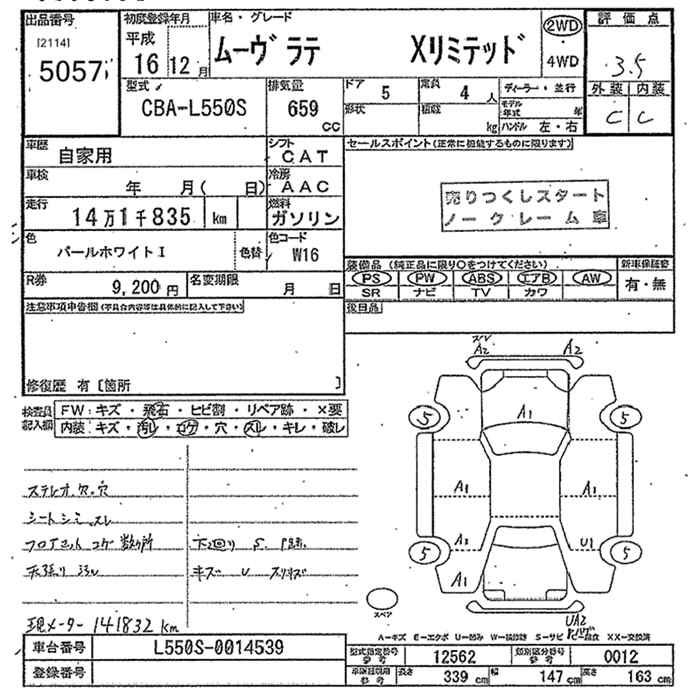 出品番号 初度登録年月 車名・グレード 評価点
[2114] 5057 平成 16 12月 ムーヴ ラテ Xリミテッド 2WD 4WD 3.5
型式 CBA-L550S 排気量 659 cc ドア 5 定員 4 人 ディーラー・並行 外装 内装
形状 積載 kg モデル年式 年 ハンドル 左・右 C C
車歴 自家用 シフト CAT セールスポイント(正常に機能するものに限ります)
車検 年 月( 日) 冷房 AAC
売りつくしスタート
ノークレーム車
走行 14万1千835 km 燃料 ガソリン
色 パールホワイトI 色替 色コード W16
装備品 (純正品に限り○をつけてください) 新車保証書
R券 9,200円 名変期限 月 日 PS PW ABS エアB AW 有・無
SR ナビ TV カワ
注意事項申告欄(不具合内容等は具体的に記入して下さい) 後日品
修復歴 有 [箇所 ]
検査員記入欄 FW:キズ・飛石・ヒビ割・リペア跡・×要
内装:キズ・汚レ・コゲ・穴・スレ・キレ・破レ
A2 A2
A1
5 5
A1 A1
A1 U1
5 5
A1
UA2
ステレオ欠.穴
シートシミ スレ
フロアマット コゲ 数ヶ所 下回り S. P跡.
天張り 汚レ キズ U スリキズ
スペア
現メーター 141832 km
A―キズ E―エクボ U―凹み W―補修跡 S―サビ C―腐食 XX―交換済
車台番号 L550S-0014539 型式指定番号 参考 12562 類別区分番号 参考 0012
登録番号 長さ 339 cm 幅 147 cm 高さ 163 cm